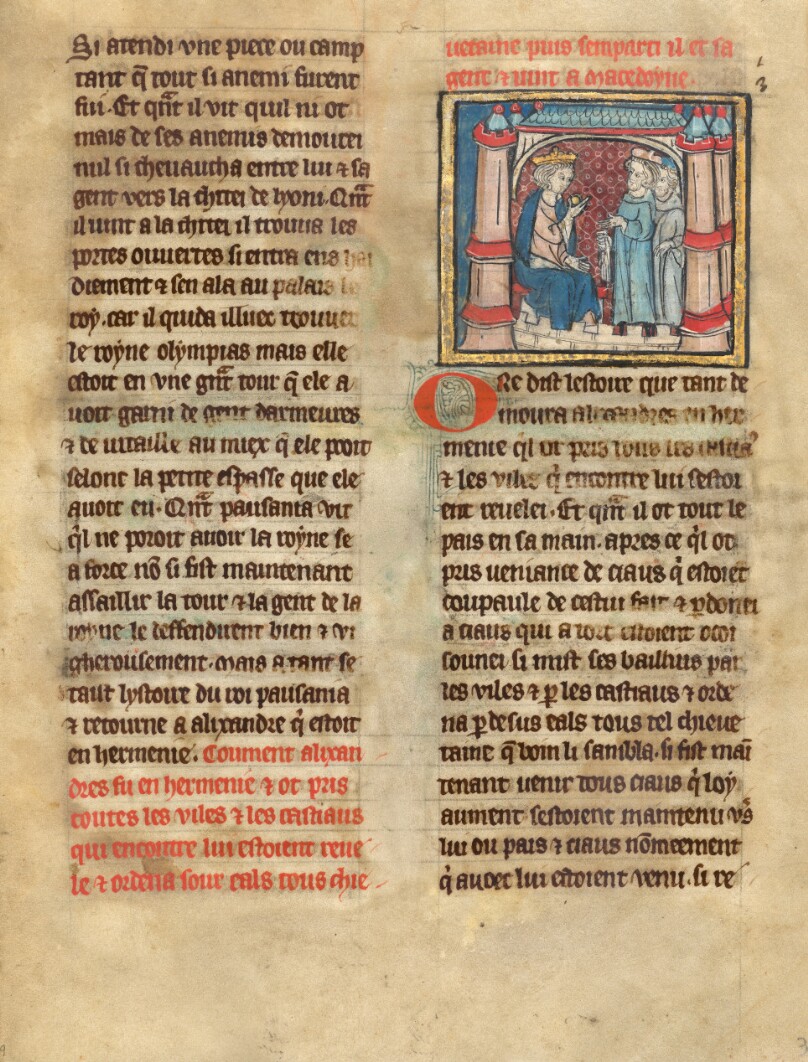 Si atendi vne piece ou camp
tant q̃ tout si anemi furent
fui. Et qñt il vit quil ni ot
mais de ses anemis demourei
nul si cheuaucha entre lui ⁊ sa
gent vers la chitei de lyoni. Qñt
il uint a la chitei il trouua les
portes ouuertes si entra ens
diement ⁊ sen ala au palais
roy. car il quida illuec trouuer
le royne olympias mais elle
estoit en vne grãt tour q̃ ele a
uoit garni de gent darmeures
⁊ de uitaille au miex q̃ ele pooit
selonc la petite espasse que ele
auoit eu. Qñt pausania vit
q̃l ne poroit auoir la royne se
a force nõ si fist maintenant
assaillir la tour ⁊ la gent de la
royne le deffendirent bien ⁊ vi
gherousement. mais a tant se
taist lystoire du roi pausania
⁊ retourne a alixandre q̃ estoit
en hermenie. Coument alixan
dres fu en hermenie ⁊ ot pris
toutes les viles ⁊ les castiaus
qui encontre lui estoient reue
le ⁊ ordena sour eals tous chie
uetaine puis semparti il et sa
gent ⁊ uint a macedoyne.
Ore dist lestoire que tant de
moura alixandres en her
menie q̃l ot pris tous les
⁊ les viles q̃ encontre lui sestoi
ent reuelei. Et qñt il ot tout le
pais en sa main. apres ce q̃l ot
pris ueniance de ciaus q̃ estoiẽt
coupaule de cestui fait ⁊ ꝑdonei
a ciaus qui a tort estoient ocoi
sounei si mist ses baillius par
les viles ⁊ ꝑ les castiaus ⁊ orde
na ꝑ desus eals tous tel chieue
taine q̃ boin li sambla. si fist mai
tenant uenir tous ciaus q̃ loy
aument sestoient maintenu v̾s
lui ou pais ⁊ ciaus nõmeement
q̃ auoec lui estoient venu. si re